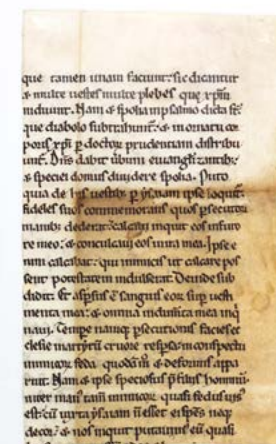 que tamen unam faciunt: sic dicantur
& multe uestes multe plebes que xp̄m
induunt. Nam & spolia in psalmo dicta st̄
que diabolo subtrahunt͛: & in ornatu cor
poris xp̄i ꝑ doctoꝝ prudentiam distribu
unt͛. Dn̄s dabit uerbum euangelizantib;
& speciei domus diuidere spolia. Puto
quia de his uestib; ꝑ ysaiam ipse loquit͛
fideles suos commemorans quos ꝑsecutoꝝ
manib; dederat: calcaui inquit eos in furo
re meo: & conculcaui eos in ira mea. Ipse e
nim calcabat: qui inimicis ut calcare pos
sent potestatem indulserat. Deinde sub
didit: Et aspersus ē sanguis eoꝝ sup uesti
menta mea: & omnia indumenta mea inq
naui. Tempe namq; ꝑsecutionis facies ec
clesie martyrū cruore respersa in conspectu
inimicoꝝ feda quodā m̊ & deformis appa
ruit. Nam & ipse speciosus p̄ filiis hominū
inter man tam inimicoꝝ quasi fedus uisus
est: cū iuxta ysaiam n̄ esset ei species neq;
decor: & nos inquit putauimus eū quasi